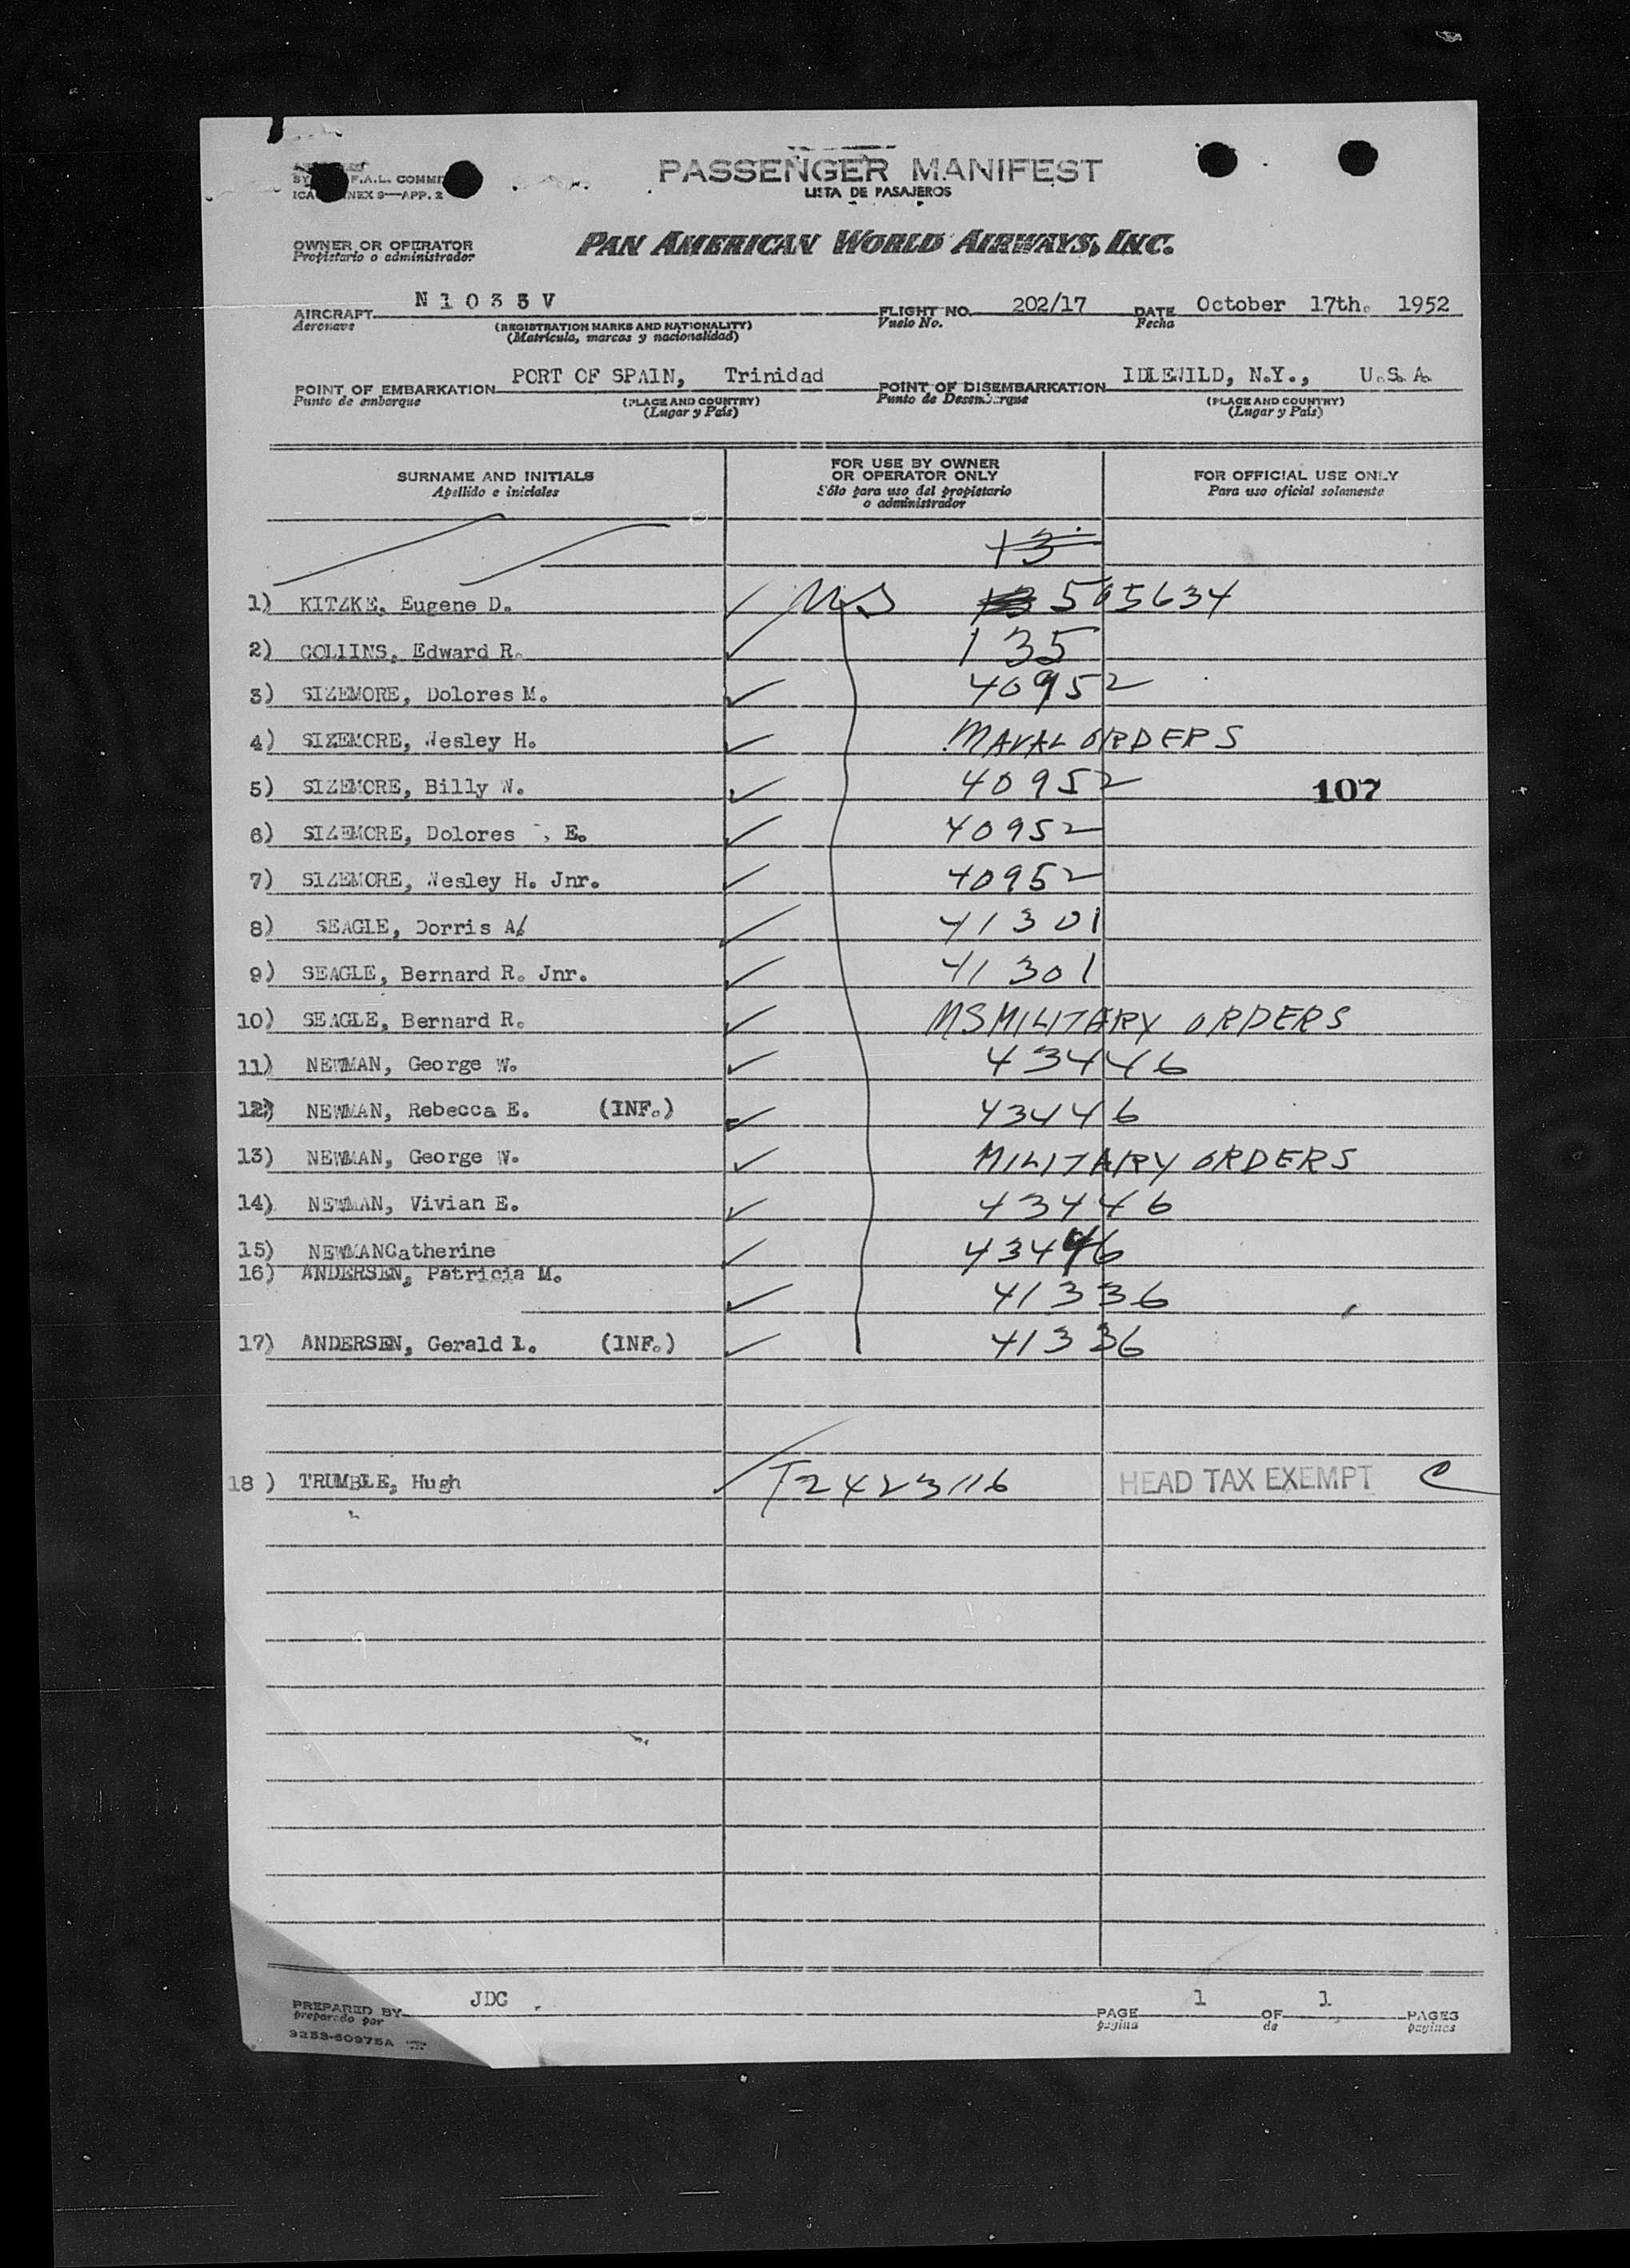 PASSENGER MANIFEST
LISTA DE PASAJEROS
F.A.L.
NEX 9—APP. 2
OWNER OR OPERATOR
Propietario o administrador
PAN AMERICAN WORLD AIRWAYS, INC.
AIRCRAFT N 1 0 3 5 V FLIGHT NO. 202/17 DATE October 17th. 1952
Aeronave (REGISTRATION MARKS AND NATIONALITY) Vuelo No. Fecha
(Matricula, marcas y nacionalidad)
POINT OF EMBARKATION PORT OF SPAIN, Trinidad POINT OF DISEMBARKATION IDLEWILD, N.Y., U.S.A.
Punto de embarque (PLACE AND COUNTRY) Punto de Desembarque (PLACE AND COUNTRY)
(Lugar y País) (Lugar y País)
SURNAME AND INITIALS FOR USE BY OWNER OR OPERATOR ONLY FOR OFFICIAL USE ONLY
Apellido e iniciales Sólo para uso del propietario o administrador Para uso oficial solamente
13
1) KITZKE, Eugene D. US 505634
2) COLLINS, Edward R. 135
3) SIZEMORE, Dolores M. 40952
4) SIZEMORE, Wesley H. NAVAL ORDERS
5) SIZEMORE, Billy W. 40952 107
6) SIZEMORE, Dolores , E. 40952
7) SIZEMORE, Wesley H. Jnr. 40952
8) SEAGLE, Dorris A/ 41301
9) SEAGLE, Bernard R. Jnr. 41301
10) SEAGLE, Bernard R. MILITARY ORDERS
11) NEWMAN, George W. 43446
12) NEWMAN, Rebecca E. (INF.) 43446
13) NEWMAN, George W. MILITARY ORDERS
14) NEWMAN, Vivian E. 43446
15) NEWMANCatherine 43446
16) ANDERSEN, Patricia M. 41336
17) ANDERSEN, Gerald L. (INF.) 41336
18 ) TRUMBLE, Hugh T2423116 HEAD TAX EXEMPT C
PREPARED BY JDC PAGE 1 OF 1 PAGES
preparado por pagina de paginas
9253-60975A